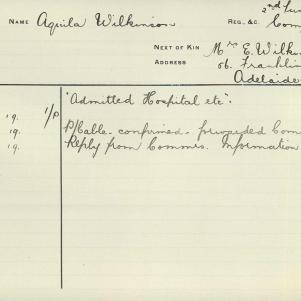 NAME Aquila Wilkinson
REG, &C. 2nd
Com
NEXT OF KIN Mrs E. Wilkin
ADDRESS
56. Franklin
Adelaide
"Admitted Hospital etc".
19. 1/P P/Cable. confirmed. forwarded Com
19. Reply from Commrs. Information
19.